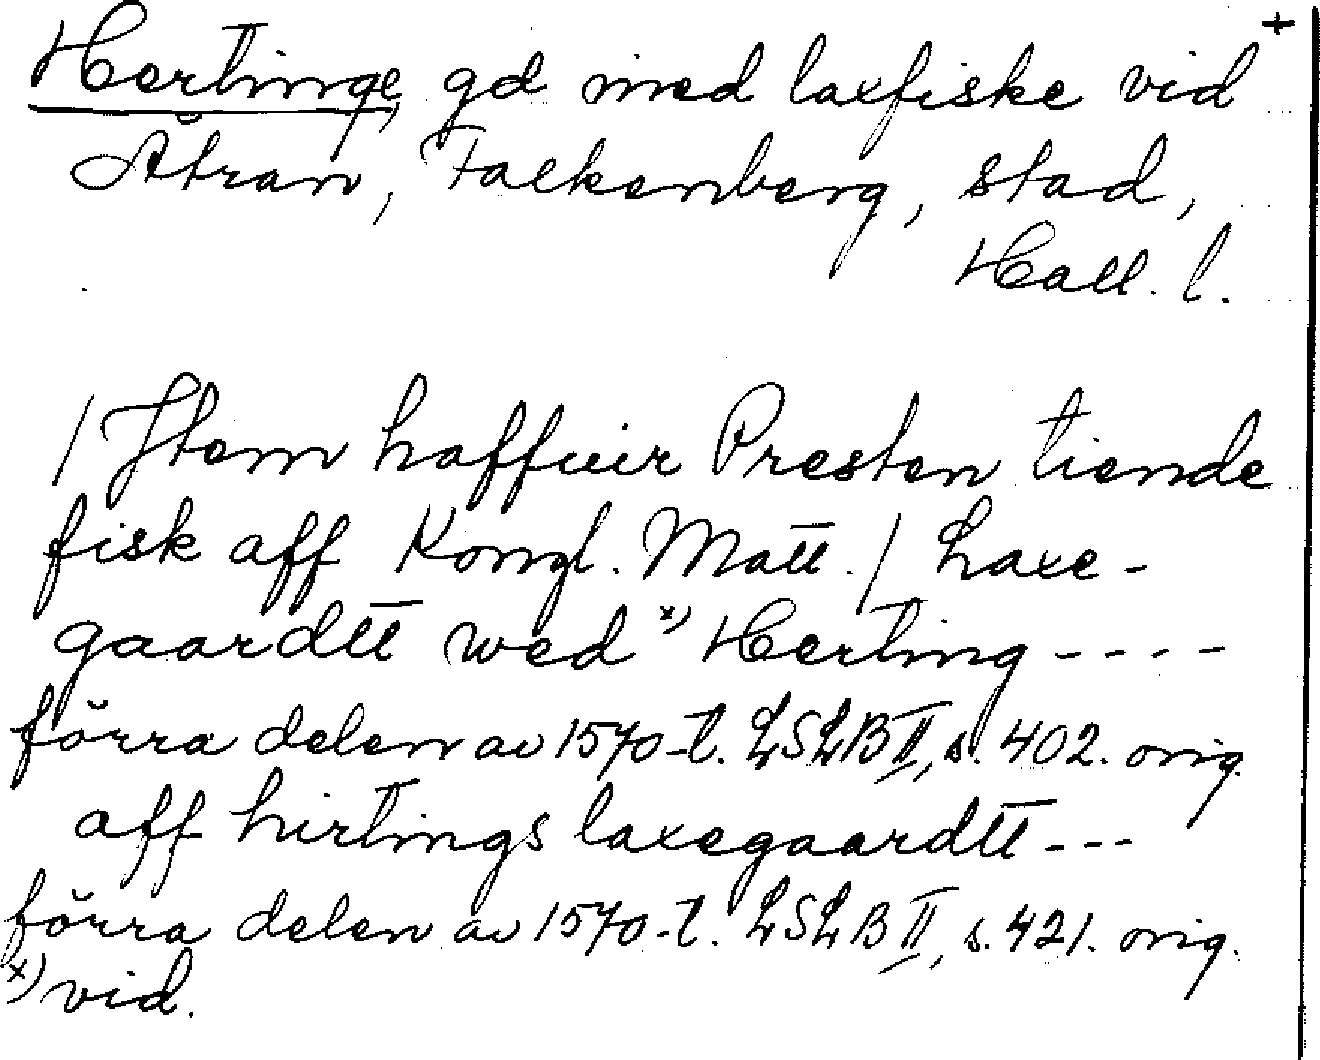 +
Hertinge, gd med laxfiske vid
Ätran, Falkenberg, stad,
Hall. l.
/ Jtem haffuir Presten tiende
fisk aff Kongl. Matt. / Laxe-
gaardtt wed x) Herting ----
förra delen av 1570-t. LSLB II, s. 402. orig.
aff hirtings laxegaardtt ---
förra delen av 1570-t. LSLB II, s. 421. orig.
x) vid.